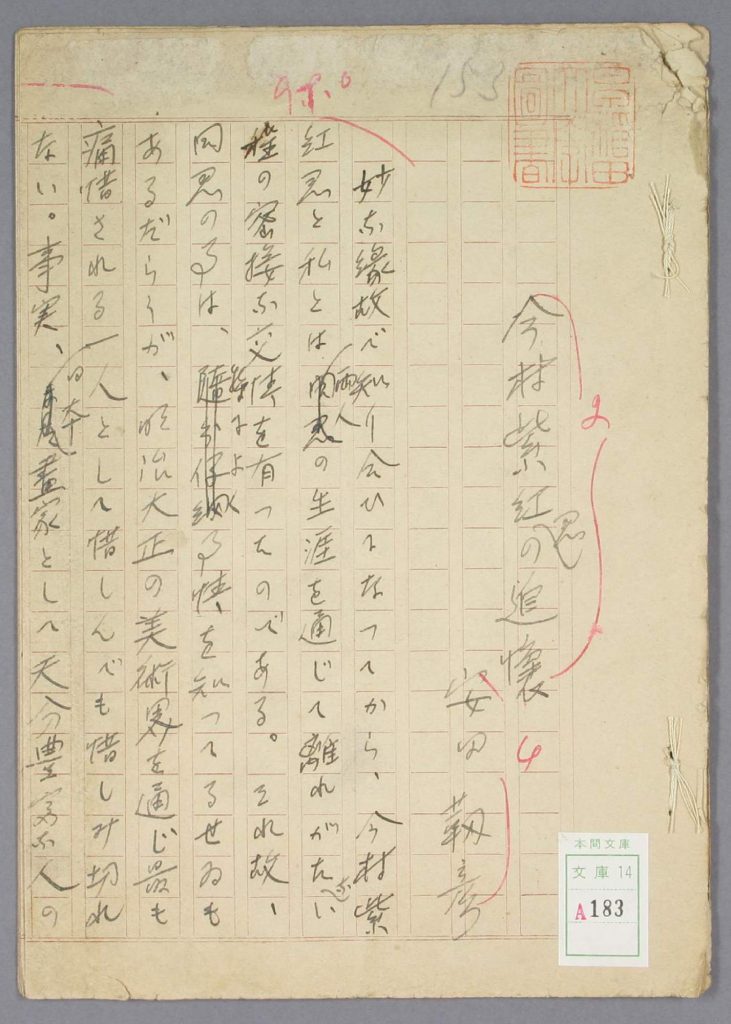 153
今村紫紅君の追懐
安田靫彦
妙な縁故で知り合ひになつてから、今村紫
紅君と私とは両人の生涯を通じて離れがたい
種の密接な交情を有つたのである。それ故、
同君の事は、事情を知つてるせゐも
あるだらうが、明治大正の美術界を通じ最も
痛惜される一人として惜しんでも惜しみ切れ
ない。事実、日本畫家として天分豊富な人の
本間文庫
文庫 14
A183